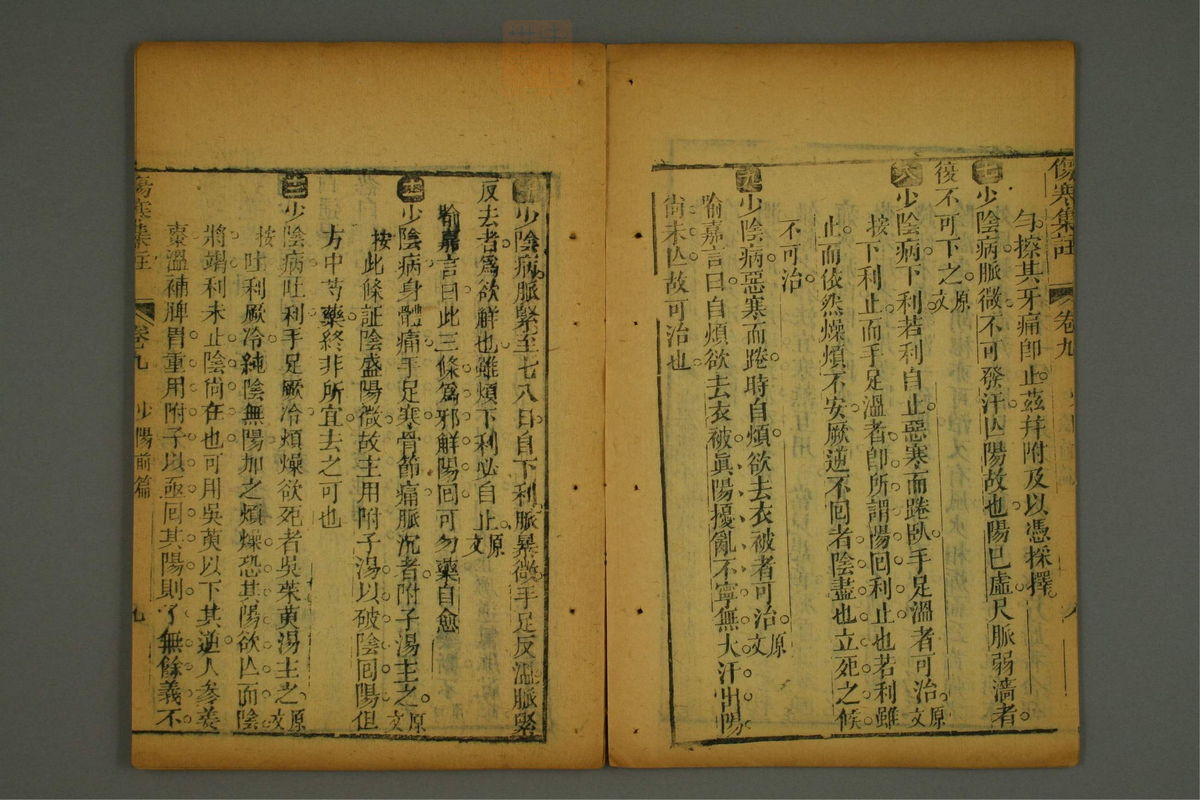 傷寒集註 卷九 八
勻擦其牙痛卽止茲拜附及以憑採擇
七 少陰病脈微不可發汗亾陽故也陽已虛尺脈弱濇者
復不可下之原文
八 少陰病下利若利自止惡寒而踡臥手足溫者可治原文
按下利止而手足溫者卽所謂陽回利止也若利雖
止而依然燥煩不安厥逆不回者陰盡也立死之候
不可治
九 少陰病惡寒而踡時自煩欲去衣被者可治原文
喻嘉言曰自煩欲去衣被眞陽擾亂不寧無大汗出陽
尚未亾故可治也
少陰病脈緊至七八日自下利脈暴微手足反溫脈緊
反去者爲欲解也雖煩下利必自止原文
喻嘉言曰此三條爲邪解陽回可勿藥自愈
少陰病身體痛手足寒骨節痛脈沉者附子湯主之原文
按此條証陰盛陽微故主用附子湯以破陰回陽但
方中芍藥終非所宜去之可也
少陰病吐利手足厥冷煩燥欲死者吳茱萸湯主之原文
按吐利厥冷純陰無陽加之煩燥恐其陽欲亾而陰
將竭利未止陰尚在也可用吳萸以下其逆人參姜
棗溫補脾胃重用附子以亟回其陽則了無餘義不
傷寒集註 卷九 少陽前篇 九